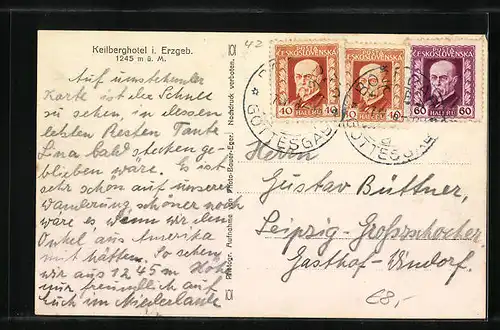 Keilberghotel i. Erzgeb.
1245 m ü. M.
Auf umstehender
Karte ist der Schnee
zu sehen, in dessen
letzten Resten Tante
Lina bald stecken ge-
blieben wäre. Es ist
sehr schön auf unserer
Wanderung, schöner noch
wäre es wenn wir den
Onkel aus Amerika
mit hätten. So sehen
wir aus 1245 m Höhe
nur freundlich auf
Euch im Niederlande
Photogr. Aufnahme Photo-Bauer-Eger. Nachdruck verboten.
42
POŠTA
ČESKOSLOVENSKÁ
40 HALÉŘŮ 40
ČESKOSLOVENSKÁ
HALÉŘŮ
POŠTA
ČESKOSLOVENSKÁ
60 HALÉŘŮ 60
GOTTESGAB
GOTTESGAB
Herrn
Gustav Büttner,
Leipzig-Großzschocher
Gasthof-Windorf.
€8,-